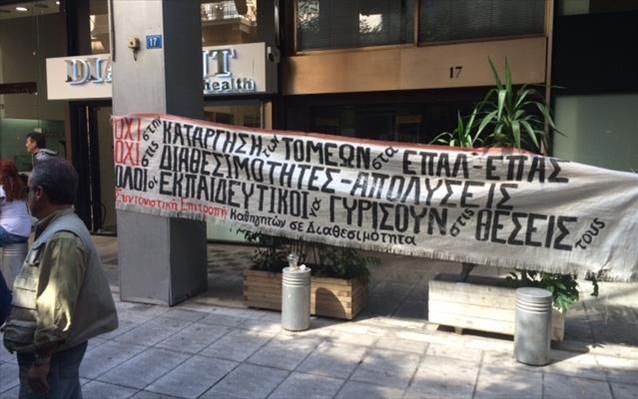 17
DIA NT
health
17
ΟΧΙ στην ΚΑΤΑΡΓΗΣΗ των ΤΟΜΕΩΝ στα ΕΠΑΛ-ΕΠΑΣ
ΟΧΙ στις ΔΙΑΘΕΣΙΜΟΤΗΤΕΣ-ΑΠΟΛΥΣΕΙΣ
ΟΛΟΙ οι ΕΚΠΑΙΔΕΥΤΙΚΟΙ να ΓΥΡΙΣΟΥΝ στις ΘΕΣΕΙΣ τους
Συντονιστική Επιτροπή Καθηγητών σε Διαθεσιμότητα